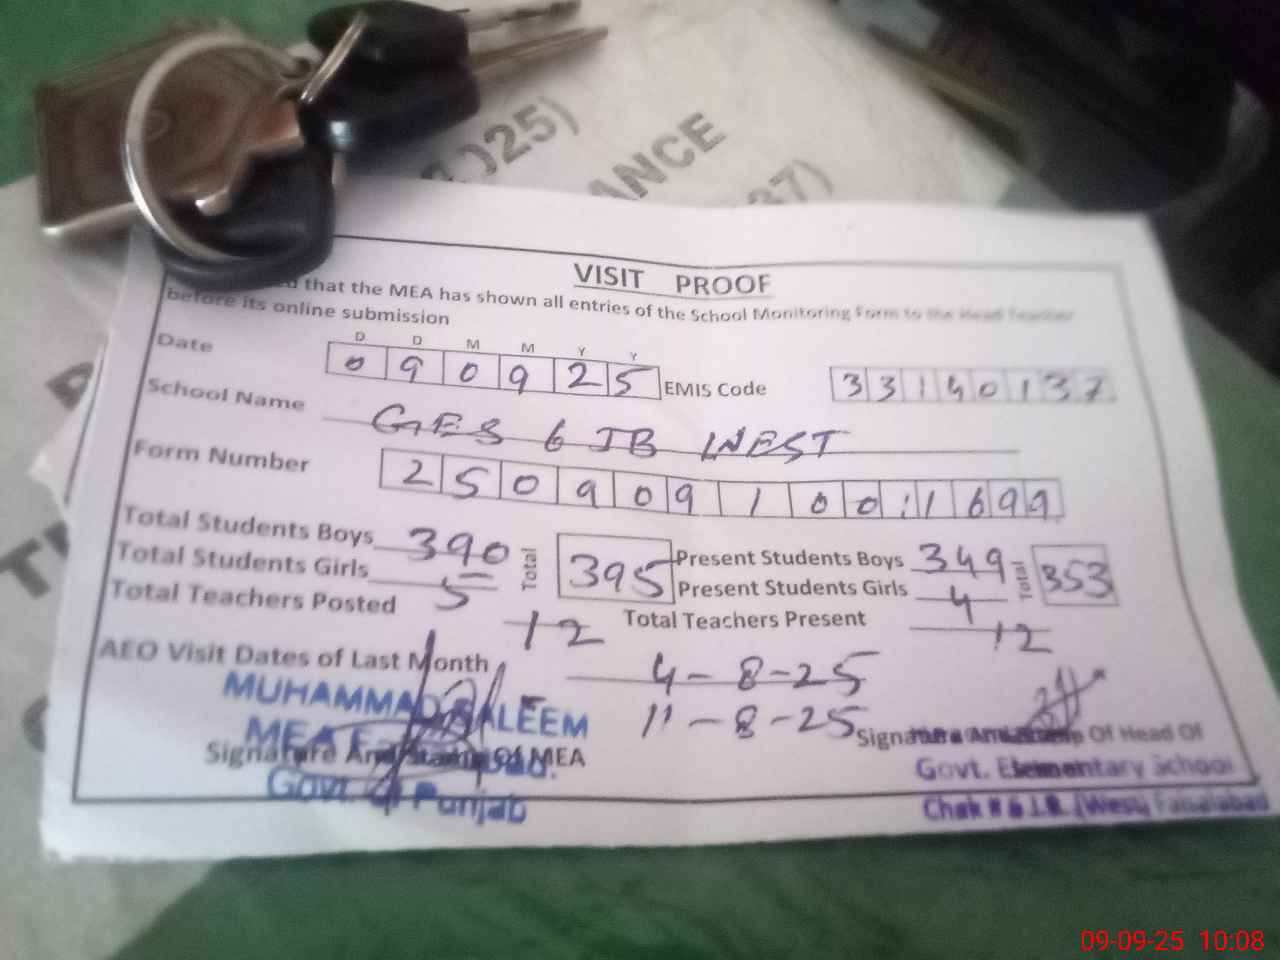 025)
ANCE
37)
VISIT PROOF
that the MEA has shown all entries of the School Monitoring Form to the Head Teacher
before its online submission
D D M M Y Y
Date 0 9 0 9 2 5 EMIS Code 3 3 1 4 0 1 3 7
School Name GES 6 JB WEST
Form Number 2 5 0 9 0 9 1 0 0 : 1 6 9 9
Total Students Boys 390 Total 395 Present Students Boys 349 Total 353
Total Students Girls 5 Present Students Girls 4
Total Teachers Posted 12 Total Teachers Present 12
AEO Visit Dates of Last Month 4-8-25
11-8-25
MUHAMMAD SALEEM
MEA
Signature And Stamp Of MEA
Govt. Of Punjab
Signature And Stamp Of Head Of
Govt. Elementary School
Chak # 6 J.B. (West) Faisalabad
09-09-25 10:08